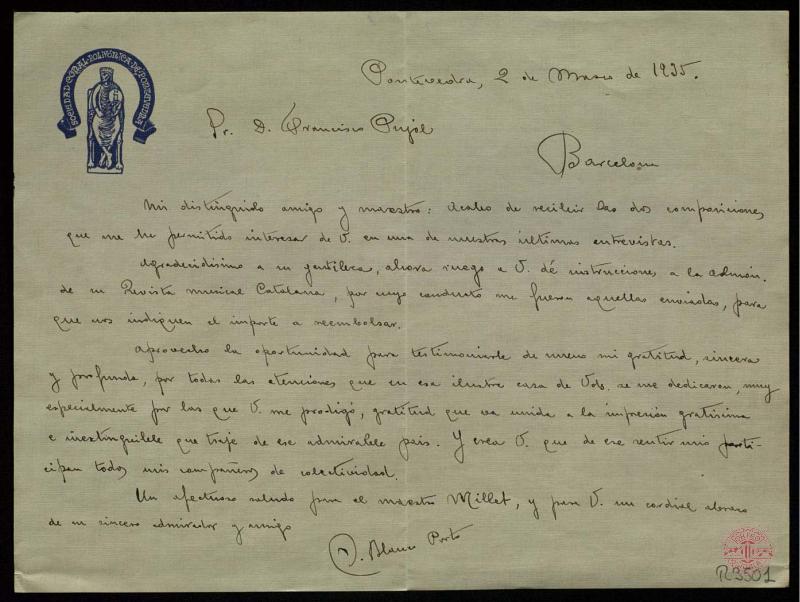 SOCIEDAD CORAL POLIFÓNICA DE PONTEVEDRA
Pontevedra, 2 de Marzo de 1935.
Sr. D. Francisco Pujol
Barcelona
Mi distinguido amigo y maestro: Acabo de recibir las dos composiciones,
que me he permitido interesar de V. en una de nuestras últimas entrevistas.
Agradecidísimo a su gentileza, ahora ruego a V. dé instrucciones a la admón.
de su Revista Musical Catalana, por cuyo conducto me fueron aquellas enviadas, para
que nos indiquen el importe a reembolsar.
Aprovecho la oportunidad para testimoniarle de nuevo mi gratitud, sincera
y profunda, por todas las atenciones que en esa ilustre casa de Vds. se me dedicaron, muy
especialmente por las que V. me prodigó, gratitud que va unida a la impresión gratísima
e inextinguible que traje de ese admirable pais. Y crea V. que de ese sentir mio parti-
cipan todos mis compañeros de colectividad.
Un afectuoso saludo para el maestro Millet, y para V. un cordial abrazo
de su sincero admirador y amigo
Blanco Porto
R3501